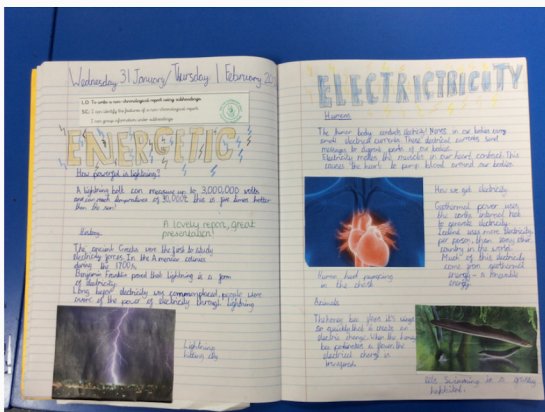 Wednesday 31 January/Thursday 1 February
L.O. To write a non-chronological report using subheadings.
S.C: I can identify the features of a non-chronological report.
I can group information under subheadings.
ENERGETIC
How powerful is lightning?
A lightning bolt can measure up to 3,000,000 volts
and can reach temperatures of 30,000°c this is five times hotter
than the sun!
A lovely report, great
presentation!
History
The ancient Greeks were the first to study
electricity forces. In the American colonies
during the 1700s.
Benjamin Franklin proved that lightning is a form
of electricity.
Long before electricity was commonplaced, people were
aware of the "power" of electricity through lightning
Lightning
hitting
ELECTRICTRICITY
Humans
The human body conducts electricity! Nerves in our bodies using
small electrical currents. These electrical currents send
messages to different parts of our bodies.
Electricity makes the muscles in our heart contract. This
causes the heart to pump blood around our bodies.
How we get electricity
Geothermal power uses
the earths internal heat
to generate electricity.
Iceland uses more electricity
per person than any other
country in the world.
Much of this electricity
come from geothermal
energy - a
energy.
Human heart pumping
in the chest
Animals
The honey bee flaps it's wings
so quickly that it create an
electric charge. When the honey
bee pollinates a flower, the
electrical charge is
Eels Swimming in a
habitat.